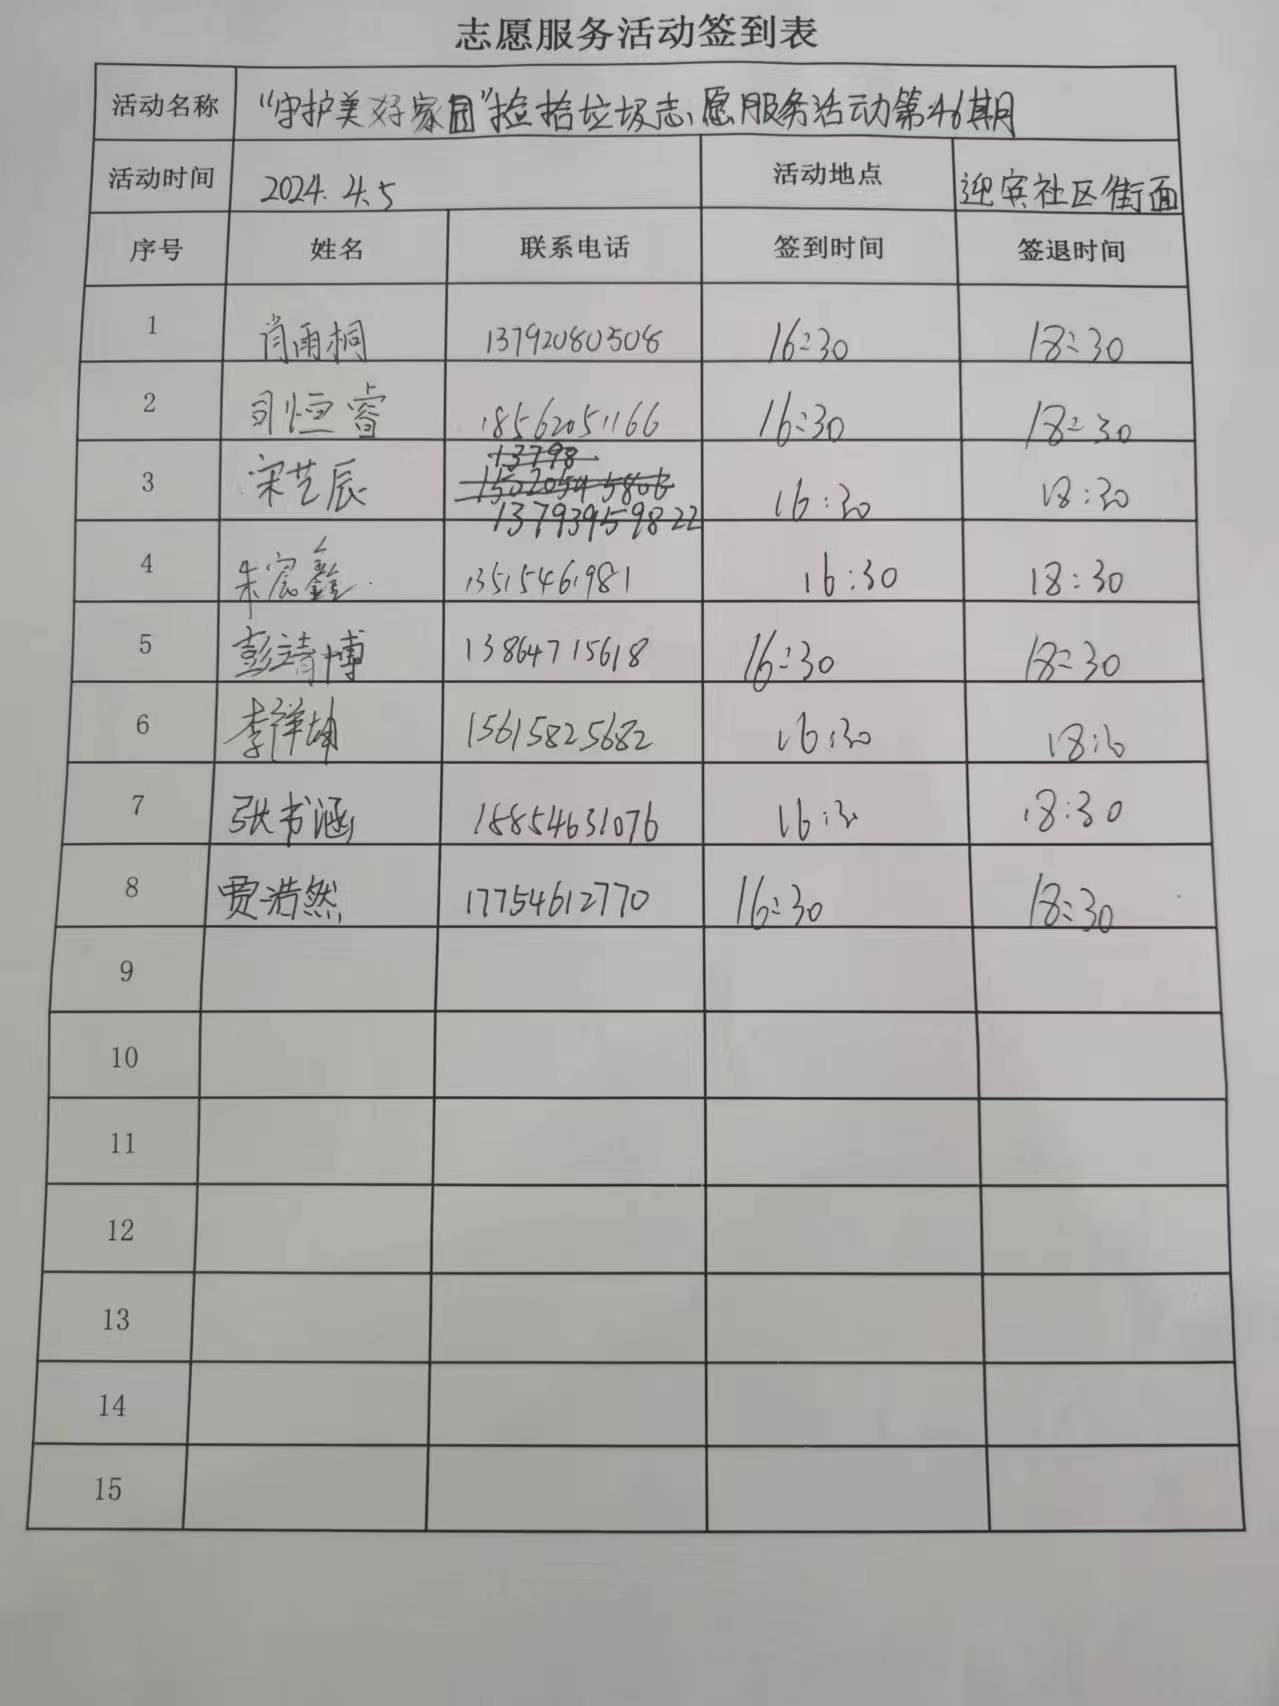 志愿服务活动签到表
活动名称 “守护美好家园”捡拾垃圾志愿服务活动第46期
活动时间 2024.4.5 活动地点 迎宾社区街面
序号 姓名 联系电话 签到时间 签退时间
1 肖雨桐 13792080508 16:30 18:30
2 司恒睿 18562051166 16:30 18:30
13798
3 宋艺辰 15020545806 16:30 18:30
13793959822
4 朱宸鑫 13515461981 16:30 18:30
5 彭靖博 13864715618 16:30 18:30
6 李祥坤 15615825682 16:30 18:30
7 张书涵 18854631076 16:30 18:30
8 贾浩然 17754612770 16:30 18:30
9
10
11
12
13
14
15